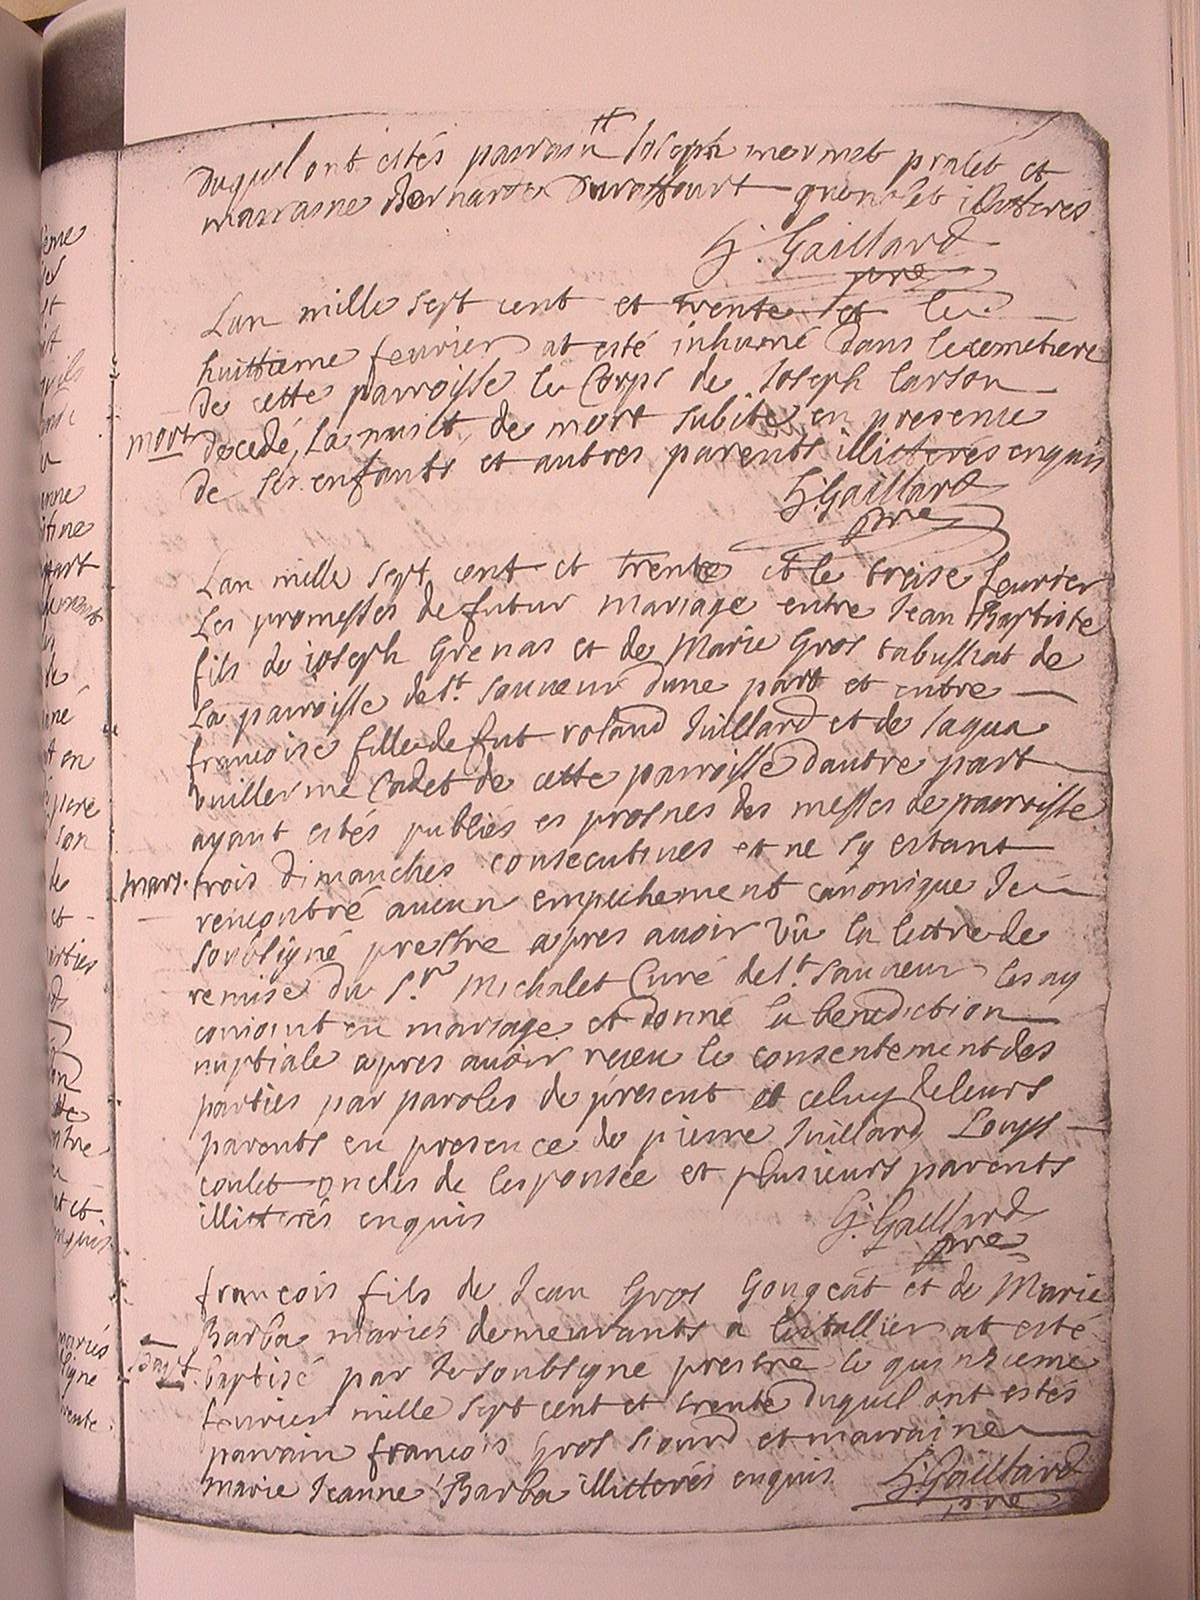 duquel ont estés parrain Joseph mermet pralet et
marraine Bernarde illitterés
G. Gaillard
pre
Lan mille sept cent et trente et le
huittieme feurier at esté inhumé dans le cemetiere
de cette parroisse le Corps de Joseph Carson
mort
decedé la nuict de mort subite en presence
de ses enfants et autres parents illitterés enquis
G. Gaillard
pre
Lan mille sept cent et trente et le treise feurier
Les promesses de futur mariage entre Jean Baptiste
fils de ioseph Grenas et de Marie Gros tabussiat de
La parroisse de St. sauueur dune part et entre
francoise fille de fut roland Juillard et de Jaqua
vuillerme Cadet de cette parroisse dautre part
ayant estés publiés es prosnes des messes de parroisse
mary.
trois dimanches consecutiues et ne sy estant
rencontré aucun empechement canonique Je
soubsigné prestre apres auoir vû la lettre de
remise du Sr. Michalet Curé de St. sauueur les ay
conioint en mariage et donné la benediction
nuptiale apres auoir receu le consentement des
parties par paroles de present et celuy de leurs
parents en presence de pierre Juillard Louys
coulet oncles de lespousée et plusieurs parents
illitterés enquis
G. Gaillard
pre
francois fils de Jean Gros Gongeat et de Marie
Barba mariés demeurants a lestallier at esté
bapt.
baptisé par Je soubsigné prestre le quinzieme
feurier mille sept cent et trente duquel ont estés
parrain francois Gros et marraine
marie Jeanne Barba illitterés enquis
G. Gaillard
pre